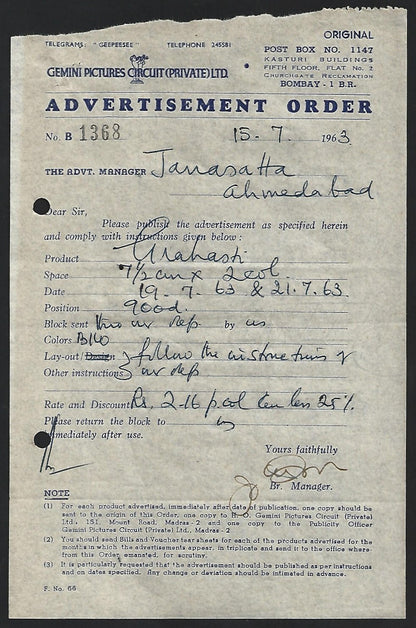 ORIGINAL
TELEGRAMS: "GEEPEESEE" TELEPHONE 245581
POST BOX NO. 1147
KASTURI BUILDINGS
FIFTH FLOOR, FLAT No. 2
CHURCHGATE RECLAMATION
BOMBAY - 1 B.R.
GEMINI PICTURES CIRCUIT (PRIVATE) LTD.
ADVERTISEMENT ORDER
No. B 1368 15-7. 1963
THE ADVT. MANAGER Janasatta
Ahmedabad
Dear Sir,
Please publish the advertisement as specified herein
and comply with instructions given below :
Product Grahasti
Space 7½ cm x 2 col.
Date 19.7.63 & 21.7.63.
Position good.
Block sent thro our rep. by us
Colors B/W
Lay-out/ follow the instructions of
Other instructions our rep
Rate and Discount Rs. 2-16 p. col cm less 25%
Please return the block to us
immediately after use.
Yours faithfully
Br. Manager.
NOTE
(1) For each product advertised, immediately after date of publication, one copy should be
sent to the origin of this Order, one copy to H. O. Gemini Pictures Circuit (Private)
Ltd., 151, Mount Road, Madras - 2 and one copy to the Publicity Officer
Gemini Pictures Circuit (Private) Ltd., Madras - 2.
(2) You should send Bills and Voucher tear sheets for each of the products advertised for the
months in which the advertisements appear, in triplicate and send it to the office where-
from this Order emanated, for scrutiny.
(3) It is particularly requested that the advertisement should be published as per instructions
and on dates specified. Any change or deviation should be intimated in advance.
F. No. 66